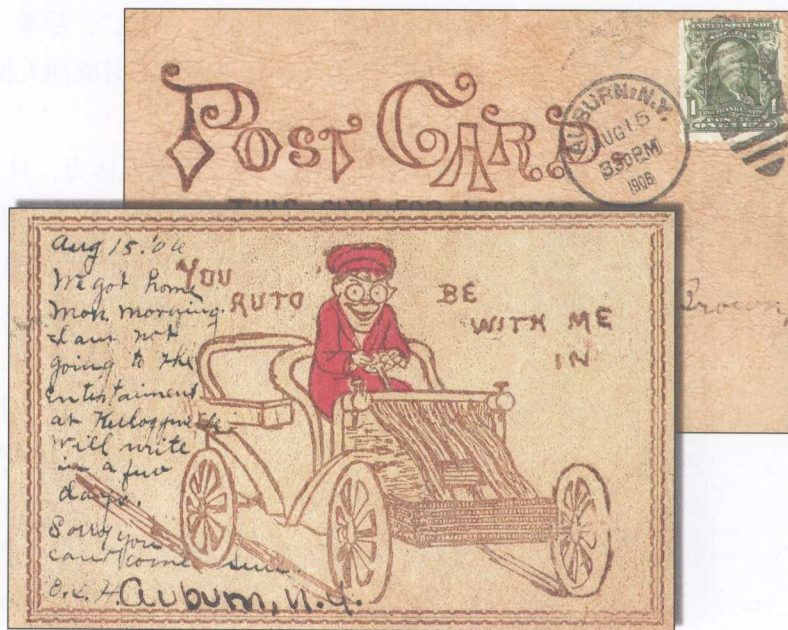 POST CARD
AUBURN, N.Y.
AUG 15
830 PM
1906
1
1
THIS SIDE FOR ADDRESS
Brown,
Aug 15. '06
We got home
Mon. morning.
I am not
going to the
entertaiment
at Kelloggsville
Will write
in a few
days.
Sorry you
can't come
O. L. H.
YOU
AUTO
BE
WITH ME
IN
Auburn, N.Y.